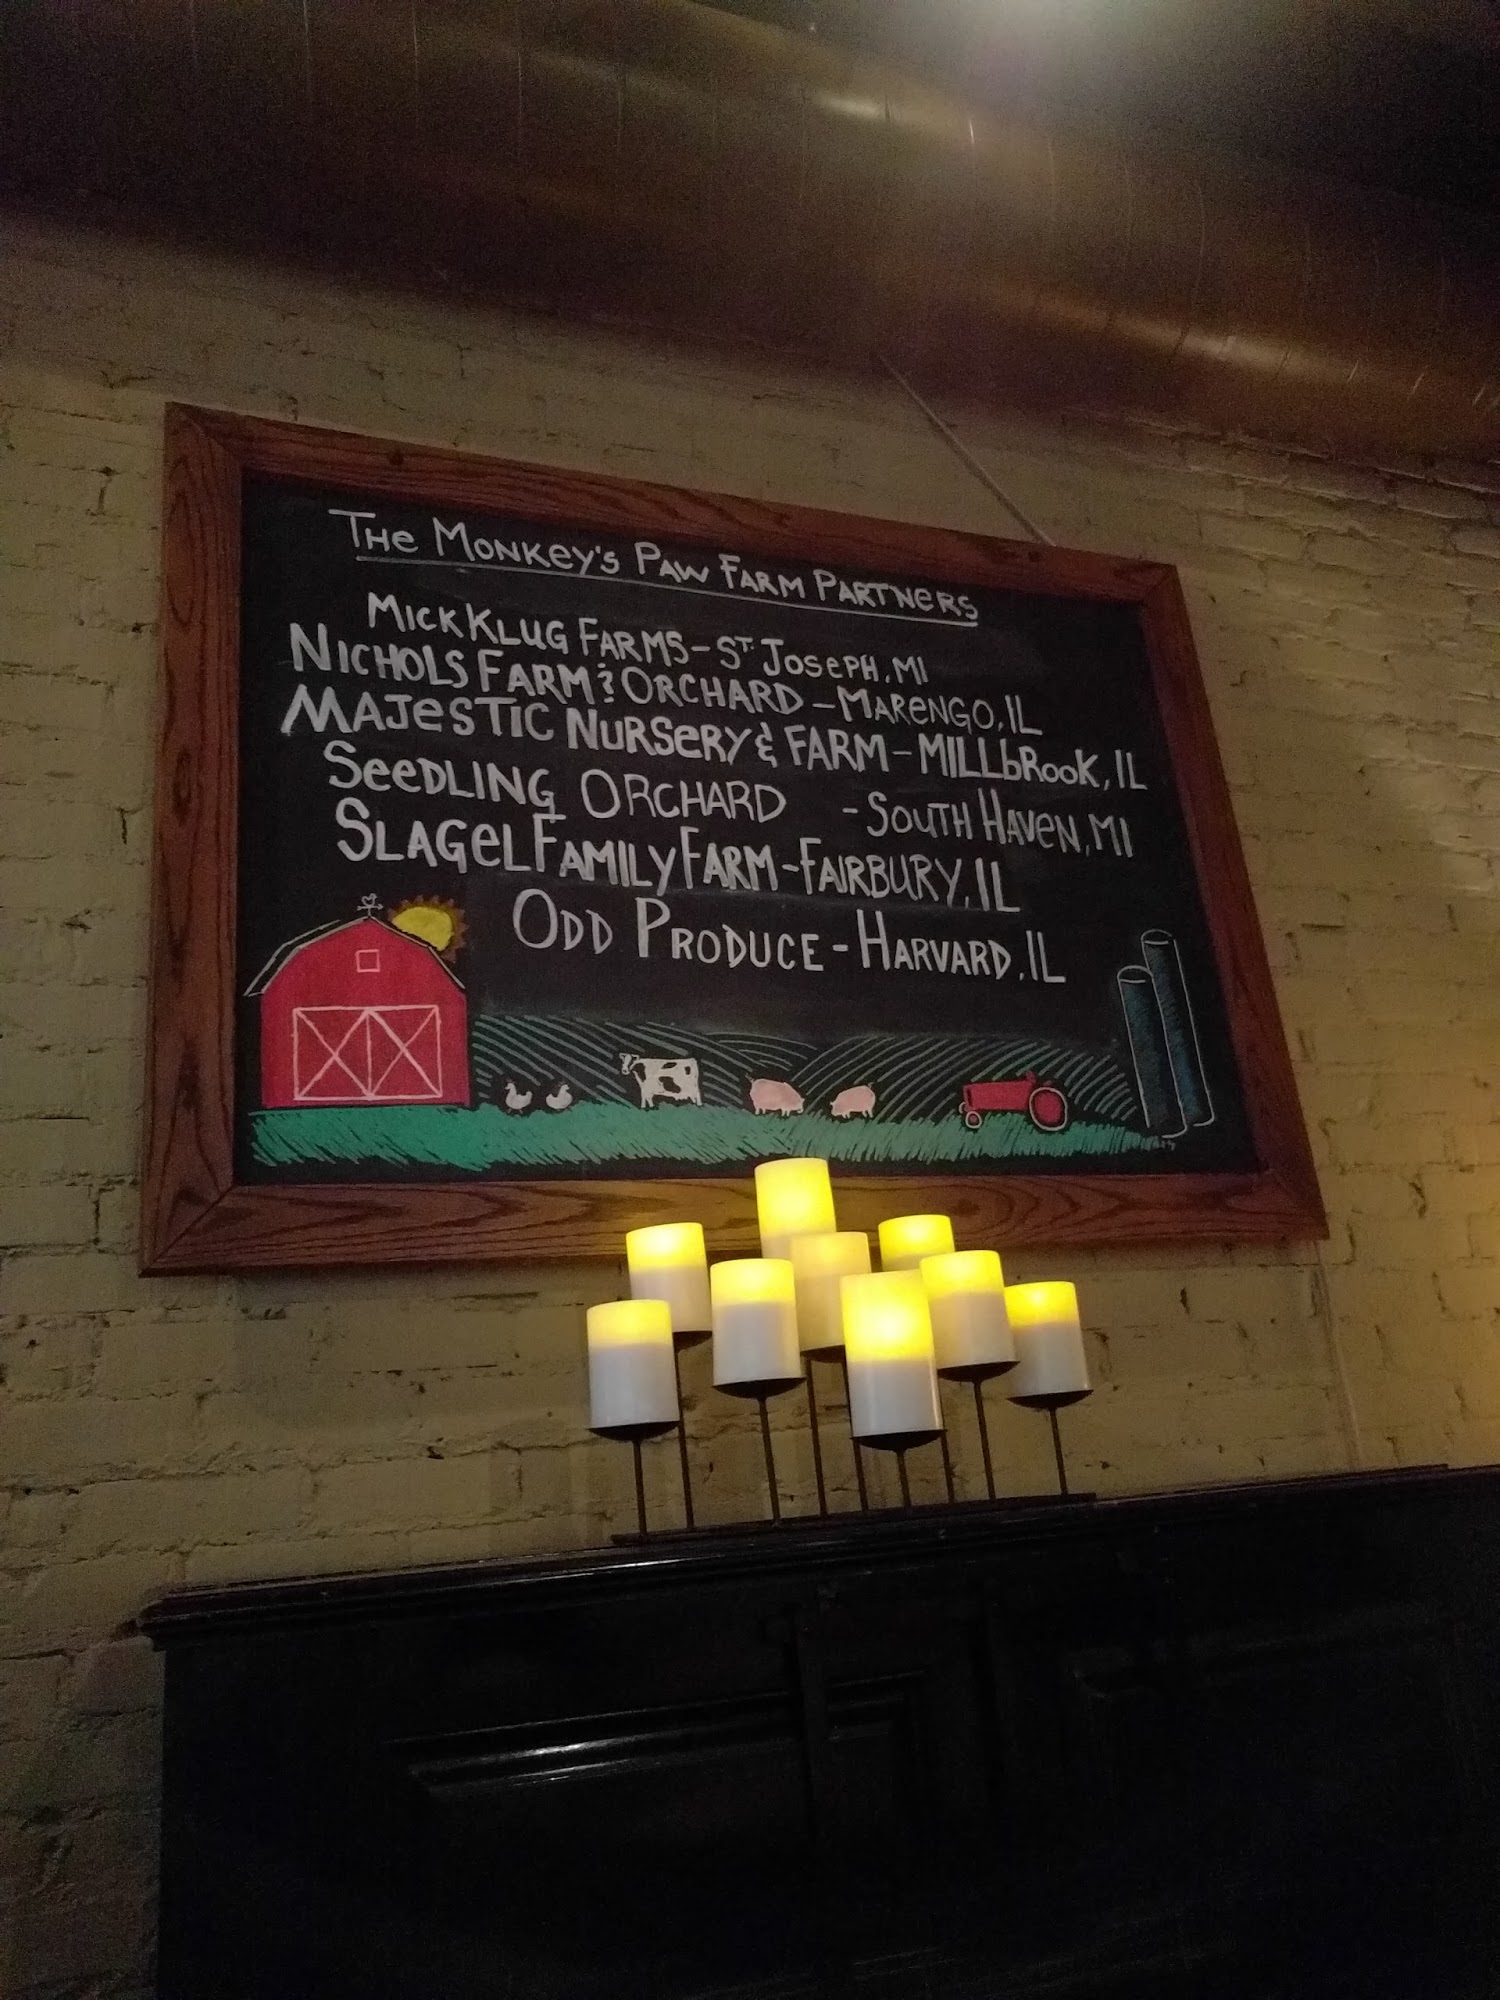 The Monkey's Paw Farm Partners
Mick Klug Farms - St. Joseph, MI
Nichols Farm & Orchard - Marengo, IL
Majestic Nursery & Farm - Millbrook, IL
Seedling Orchard - South Haven, MI
Slagel Family Farm - Fairbury, IL
Odd Produce - Harvard, IL